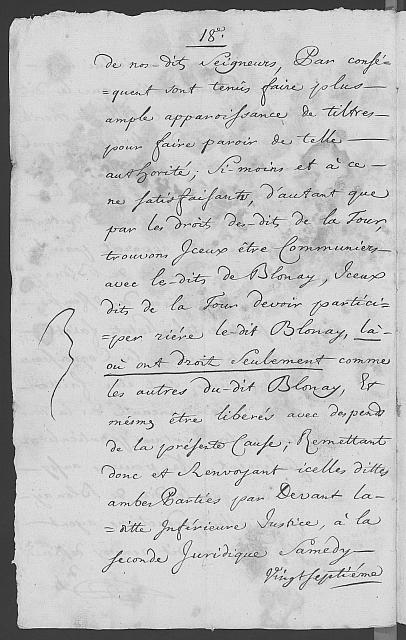 18e.
de nos-dits Seigneurs, Par consé=
=quent sont tenûs faire plus
ample apparoissance de tiltres
pour faire paroir de telle
authorité; Si-moins et à ce
ne satisfaisants, d'autant que
par les droits des-dits de la Tour,
trouvons Jceux être Communiers
avec le-dits de Blonay, Jceux
dits de la Tour devoir partici=
=per riére le-dit Blonay, là
où ont droit seulement comme
les autres du-dit Blonay, Et
mémes être liberés avec despends
de la présente Cause; Remettant
donc et Renvoyant icelles dittes
ambes Parties par Devant la=
=ditte Inférieure Justice, à la
seconde Juridique Samedy
Vingt septiéme